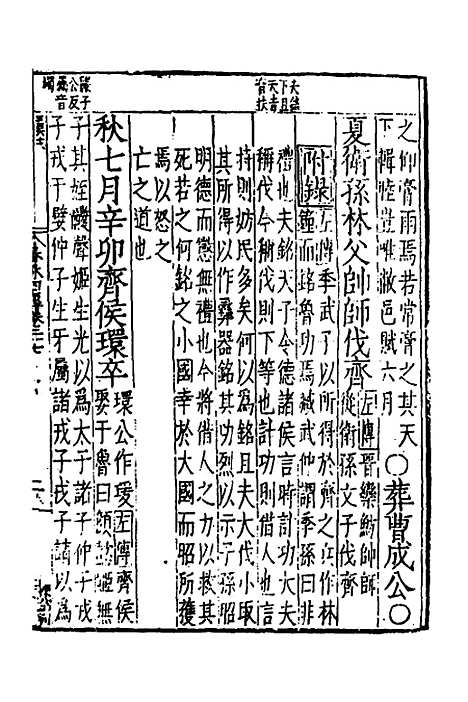 音扶
之仰膏雨焉若常膏之其天
下輯睦豈唯敝邑賦六月
○葬曹成公○
夏衛孫林父帥師伐齊
左傳晉欒魴帥師
從衛孫文子伐齊
附錄
左傳季武子以所得於齊之兵作林
鐘而銘魯功焉臧武仲謂季孫曰非
禮也夫銘天子令德諸侯言時計功大夫
稱伐今稱伐則下等也計功則借人也言
時則妨民多矣何以為銘且夫大伐小取
其所得以作彝器銘其功烈以示子孫昭
明德而懲無禮也今將借人之力以救其
死若之何銘之小國幸於大國而昭所獲
焉以怒之
亡之道也
秋七月辛卯齊侯環卒
環公作瑗左傳齊侯
娶于魯曰顏懿姬無
子其姪鬷聲姬生光以為太子諸子仲子戎
子戎子嬖仲子生牙屬諸戎子戎子請以為
鬷子
公反